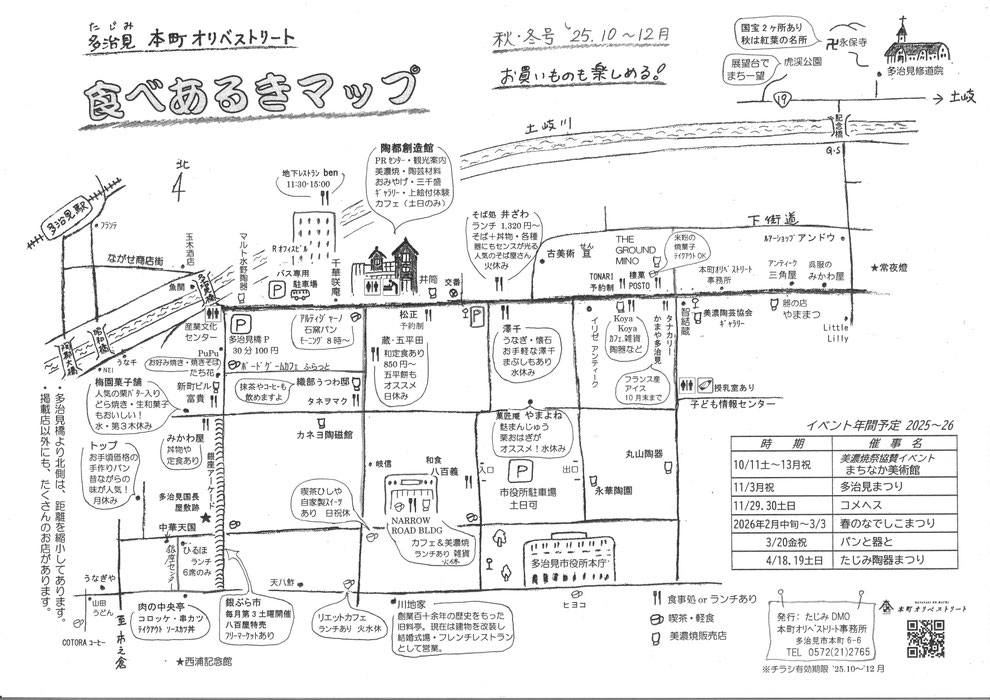 たじみ
多治見 本町オリベストリート
食べあるきマップ
秋・冬号 '25.10〜12月
お買いものも楽しめる!
国宝2ヶ所あり
秋は紅葉の名所
卍永保寺
多治見修道院
展望台で
まち一望
虎渓公園
19
→土岐
記念橋
G・S
土岐川
北
多治見駅
フランテ
玉木酒店
ながせ商店街
魚関
多治見橋
昭和橋
マルト水野陶器
地下レストラン ben
11:30-15:00
Rオフィスビル
バス専用
P 駐車場
千華咲庵
陶都創造館
PRセンター・観光案内
美濃焼・陶芸材料
おみやげ・三千盛
ギャラリー・上絵付体験
カフェ(土日のみ)
井筒
交番
そば処 井ざわ
ランチ 1,320円〜
そば+丼物・各種
器にもセンスが光る
人気のそば屋さん
火休み
下街道
古美術 亘
せん
THE
GROUND
MINO
TONARI
予約制
棲菓
POSTO
米粉の
焼菓子
テイクアウトOK
本町オリベストリート
事務所
ルアーショップ アンドウ
アンティーク
三角屋
呉服の
みかわ屋
★常夜燈
産業文化
センター
P
多治見橋P
30分100円
アルティジャーノ
石窯パン
モーニング 8時〜
松正
予約制
蔵・五平田
和定食あり
850円〜
五平餅も
オススメ
日休み
P
澤千
うなぎ・懐石
お手軽な澤千
まぶしもあり
水休み
イリゼ アンティーク
Koya
Koya
カフェ.雑貨
陶器など
タナカリー
かまや多治見
フランス産
アイス
10月末まで
智結蔵
美濃陶芸協会
ギャラリー
器の店
やままつ
Little
Lilly
うな千
NEI
PuPu
お好み焼き・焼きそば
たち花
ボードゲームカフェ ふらっと
梅園菓子舗
人気の栗バター入り
どら焼き・生和菓子
もおいしい!
水・第3木休み
新町ビル
富貴
抹茶やコーヒーも
飲めますよ
織部うつわ邸
タネヲマク
カネヨ陶磁館
授乳室あり
子ども情報センター
トップ
お手頃価格の
手作りパン
昔ながらの
味が人気!
月休み
みかわ屋
丼物や
定食あり
銀座アーケード
多治見国長
邸敷跡
★
菓匠庵 やまよね
麩まんじゅう
栗おはぎが
オススメ!水休み
丸山陶器
岐信
和食
八百義
入口
P
出口
市役所駐車場
土日可
永華陶園
喫茶ひしや
自家製スイーツ
あり 日祝休
NARROW
ROAD BLDG
カフェ&美濃焼
ランチあり 雑貨
火休
中華天国
ひるほ
ランチ
6席のみ
銀座センター
多治見市役所本庁
・多治見橋より北側は、距離を縮小してあります。
・掲載店以外にも、たくさんのお店があります。
うなぎや
山田
うどん
COTORA コーヒー
至市之倉
肉の中央亭
コロッケ・串カツ
テイクアウト ソースカツ丼
銀ぶら市
毎月第3土曜開催
八百屋特売
フリーマーケットあり
★西浦記念館
天八鮓
リエットカフェ
ランチあり 火水休
川地家
創業百十余年の歴史をもった
旧料亭。現在は建物を改装し
結婚式場・フレンチレストラン
として営業。
ヒヨコ
食事処 or ランチあり
喫茶・軽食
美濃焼販売店
イベント年間予定 2025〜26
時 期 催 事 名
10/11土〜13月祝 美濃焼祭協賛イベント
まちなか美術館
11/3月祝 多治見まつり
11/29.30土日 コメヘス
2026年2月中旬〜3/3 春のなでしこまつり
3/20金祝 パンと器と
4/18.19土日 たじみ陶器まつり
発行:たじみDMO
本町オリベストリート事務所
多治見市本町6-6
TEL 0572(21)2765
※チラシ有効期限 '25.10〜'12月
本町オリベストリート